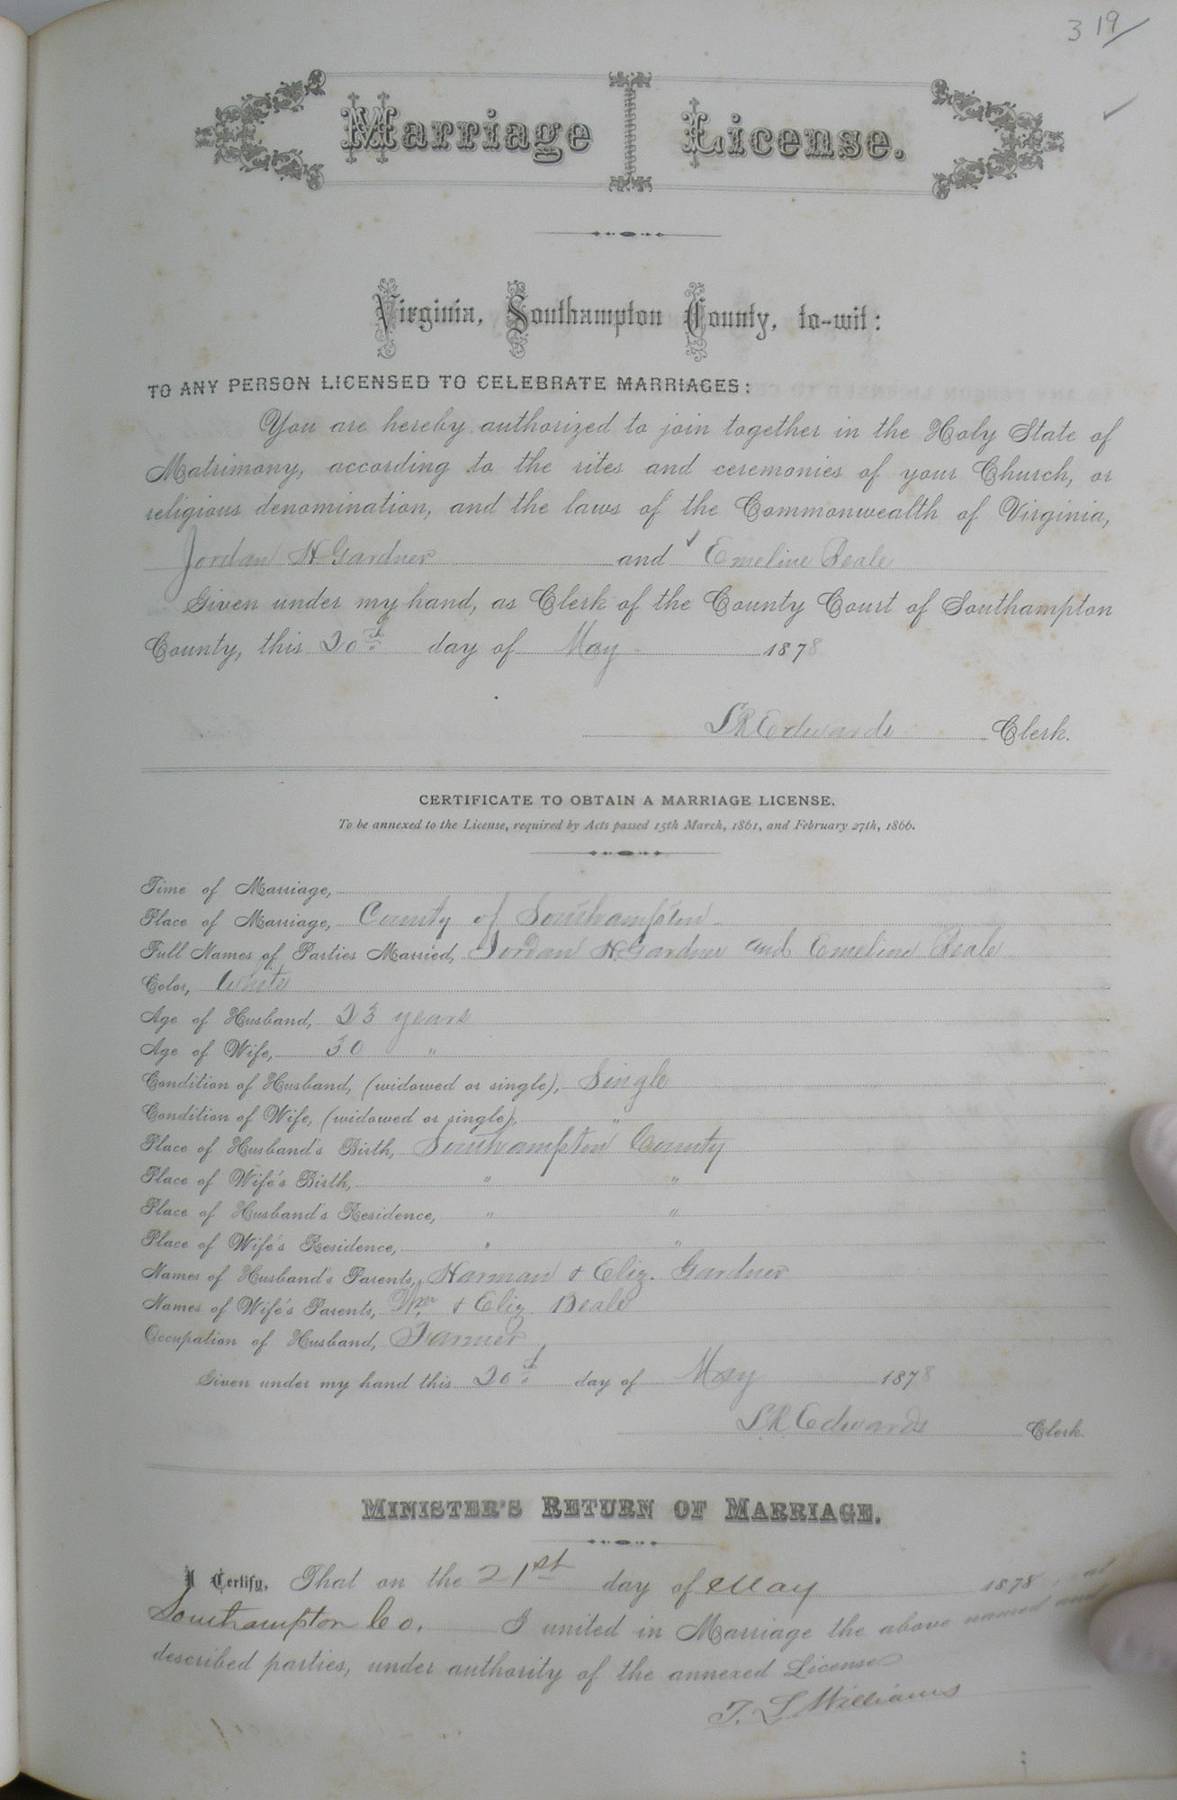 319
Marriage License.
Virginia, Southampton County, to-wit:
TO ANY PERSON LICENSED TO CELEBRATE MARRIAGES:
You are hereby authorized to join together in the Holy State of
Matrimony, according to the rites and ceremonies of your Church, or
religious denomination, and the laws of the Commonwealth of Virginia,
Jordan H Gardner and Emeline Beale
Given under my hand, as Clerk of the County Court of Southampton
County, this 20th day of May 1878
L R Edwards Clerk.
CERTIFICATE TO OBTAIN A MARRIAGE LICENSE.
To be annexed to the License, required by Acts passed 15th March, 1861, and February 27th, 1866.
Time of Marriage,
Place of Marriage, County of Southampton
Full Names of Parties Married, Jordan H. Gardner and Emeline Beale
Color, White
Age of Husband, 23 years
Age of Wife, 30 "
Condition of Husband, (widowed or single), Single
Condition of Wife, (widowed or single), "
Place of Husband's Birth, Southampton County
Place of Wife's Birth, " "
Place of Husband's Residence, " "
Place of Wife's Residence, " "
Names of Husband's Parents, Harman & Eliz. Gardner
Names of Wife's Parents, Wm & Eliz Beale
Occupation of Husband, Farmer
Given under my hand this 20th day of May 1878
L R Edwards Clerk
MINISTER'S RETURN OF MARRIAGE.
I Certify, That on the 21st day of May 1878, at
Southampton Co. I united in Marriage the above named and
described parties, under authority of the annexed License
T. L Williams